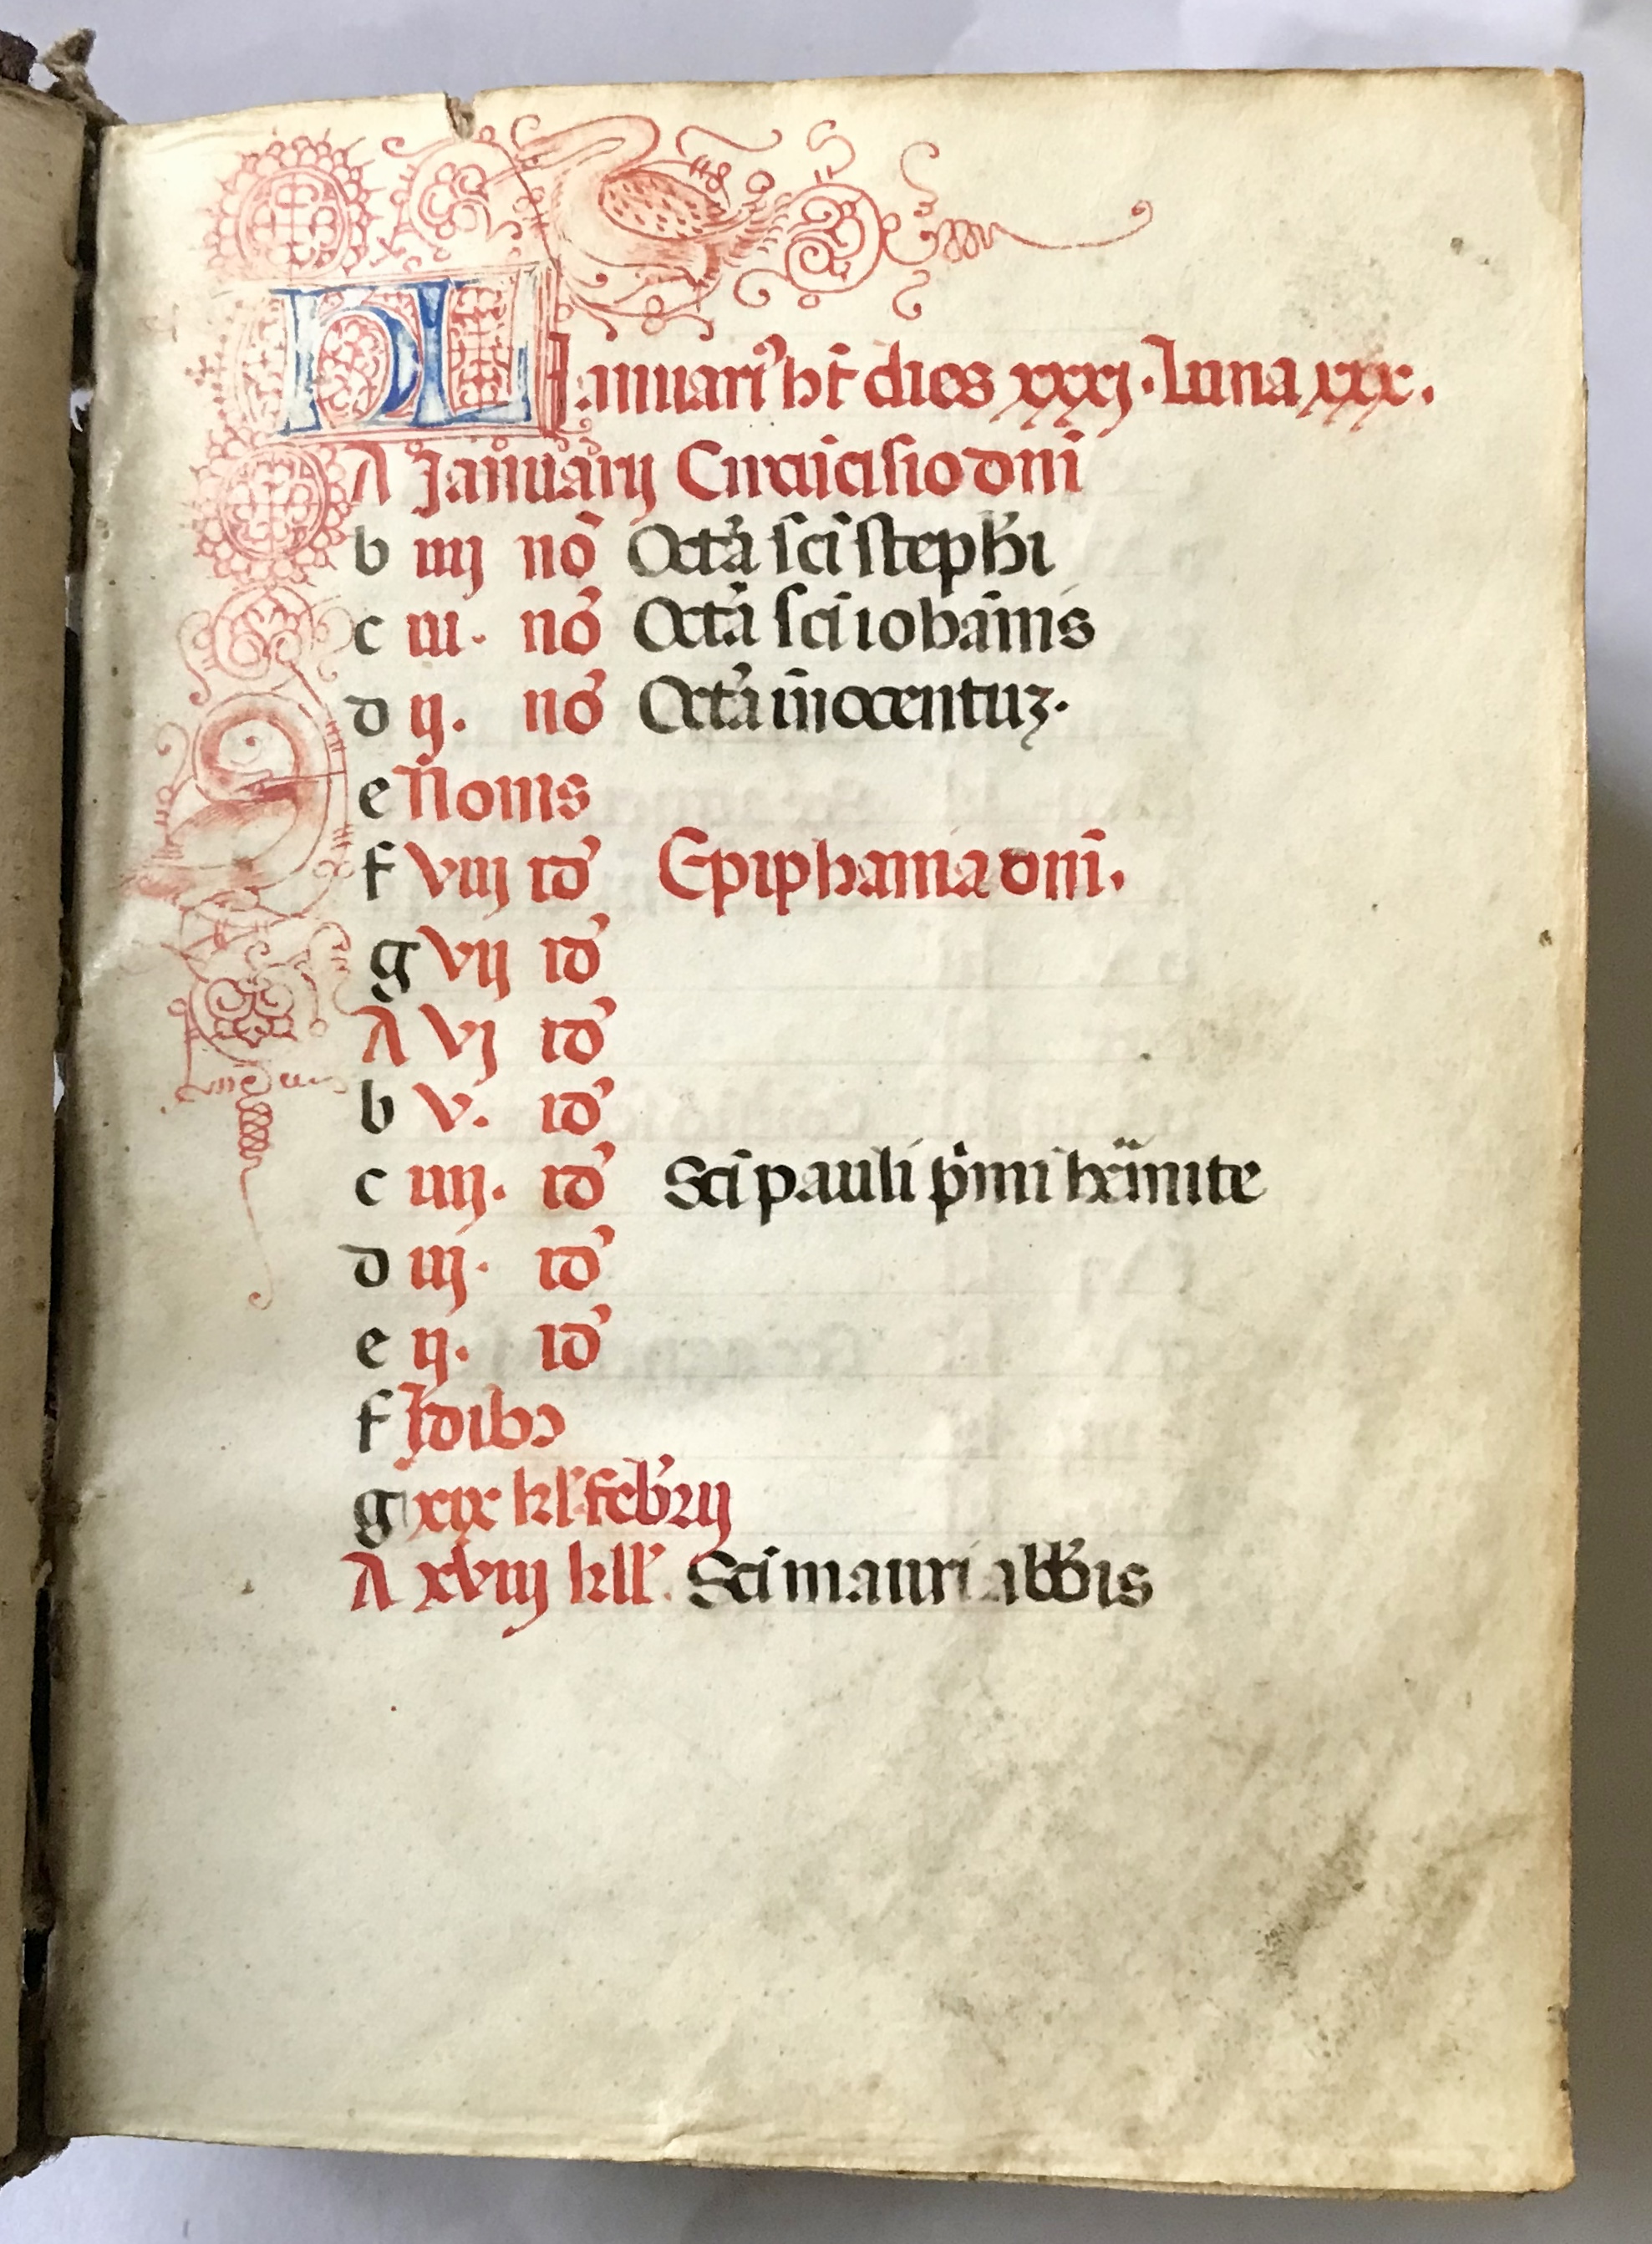 KL Januari⁹ ht̄ dies xxxj. Luna xxx.
A Januarij Circūcisio dn̄i
b iiij nō Octā sc̄i steph̄i
c iij. nō Octā sc̄i iohānis
d ij. nō Octā īnocentuꝫ.
e Nonis
f viij id᾽ Epiphania dn̄i.
g vij id᾽
A vj id᾽
b v. id᾽
c iiij. id᾽ Sc̄i pauli p̄mi her̄mite
d iij. id᾽
e ij. id᾽
f Idibꝰ
g xix kl᾽ feb᾽rij
A xviij kll᾽. Sc̄i mauri abb̄is